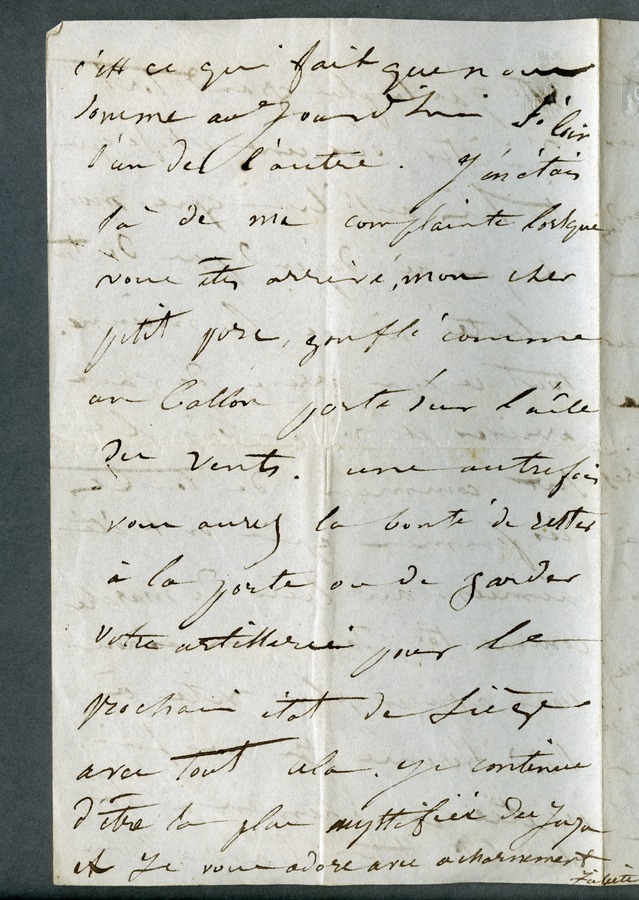 c'est ce qui fait que nous
somme aujourd'hui si loin
l'un de l'autre. J'en étais
là de ma complainte lorsque
vous êtes arrivé, mon cher
petit pere, gonflé comme
un ballon porté sur l'aîle
des vents. une autrefois
vous aurez la bonté de rester
à la porte ou de garder
votre artillerie pour le
prochain état de siège
avec tout cela. je continue
d'être la plus mystifiée des Juju
et je vous adore avec acharnement
Juliette